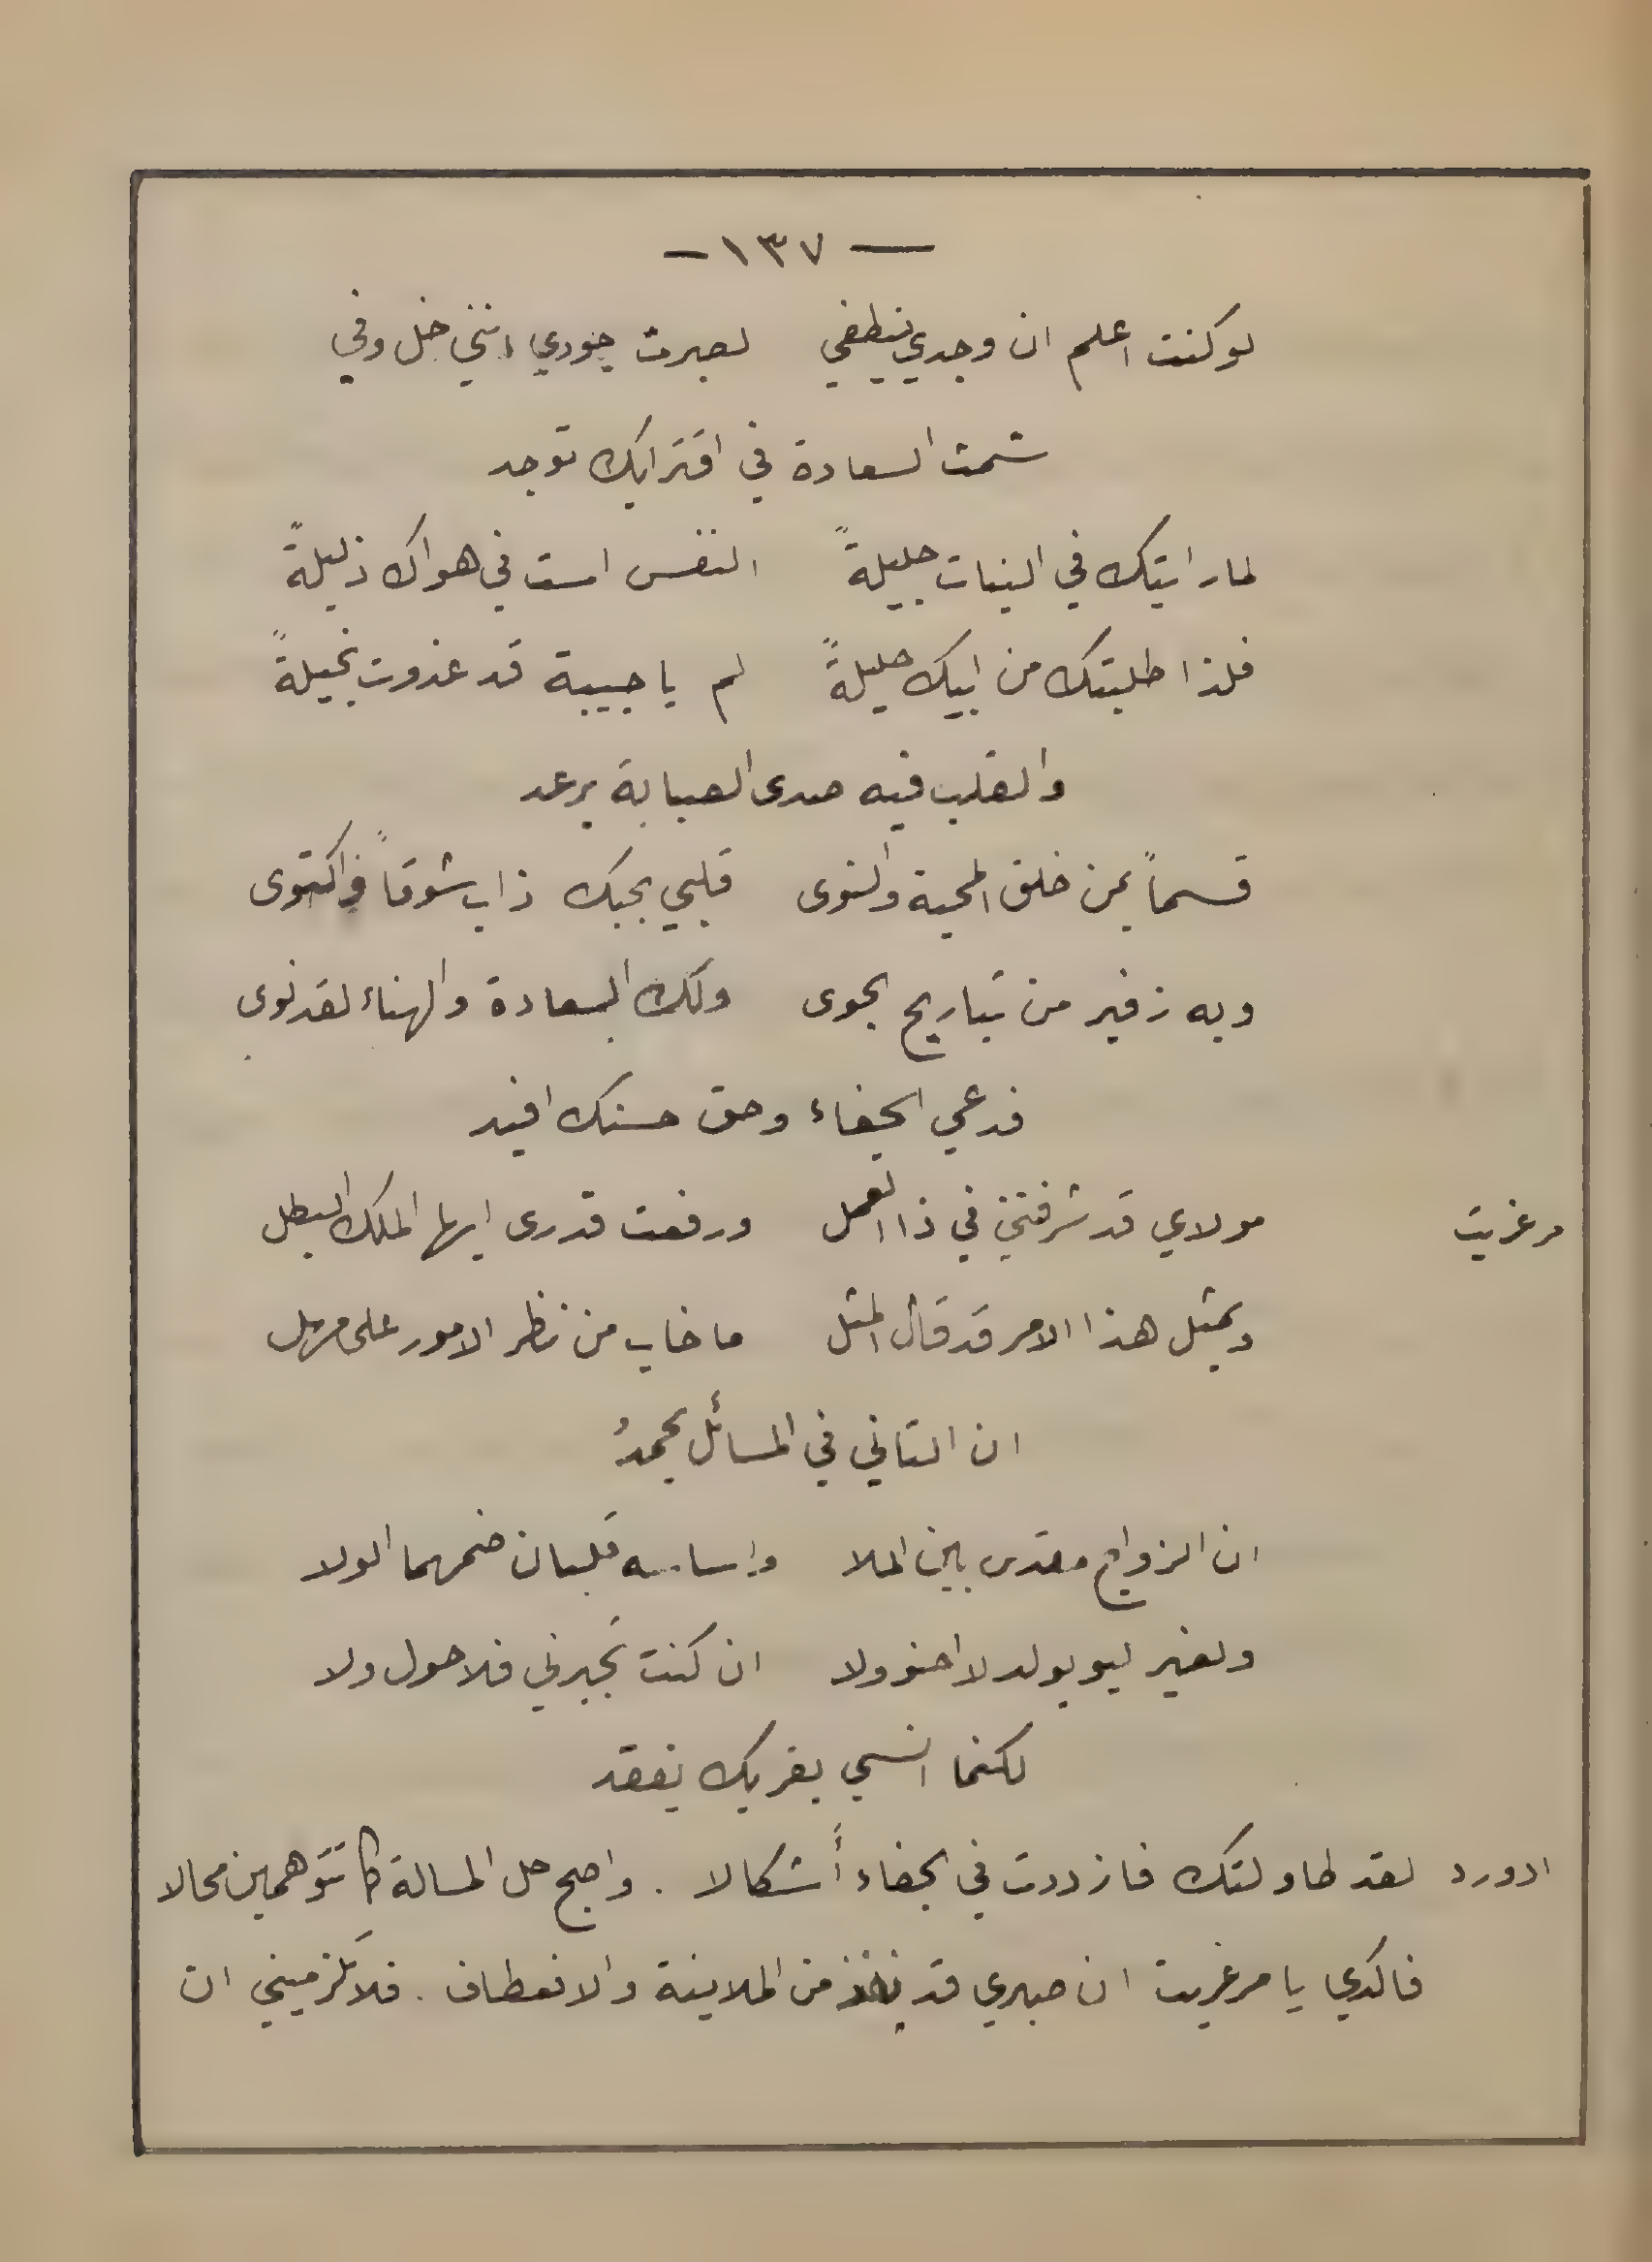 — ١٣٧ —
لو كنت اعلم ان وجدي ينطفي لصبرت جودي انني خل وفي
شمت السعادة في اقترابك توجد
لما رايتك في البنات جليلةً النفس امست في هواك ذليلةً
فلذا طلبتك من ابيك حليلةً لم يا حبيبة قد غدوت بخيلةً
والقلب فيه صدى الصبابة يرعد
قسماً بمن خلق المحبة والنوى قلبي بحبك ذاب شوقاً واكتوى
وبه زفير من تباريح الجوى ولك السعادة والهناء لقد نوى
فدعي الجفاء وحق حسنك افيد
مرغريت مولاي قد شرفتني في ذا العمل ورفعت قدرى ايها الملك البطل
وبمثل هذا الامر قد قال المثل ما خاب من نظر الامور على مهل
ان التاني في المسائل يحمدُ
ان الزواج مقدس بين الملا واساسه قلبان ضمهما الولا
ولغير ليوبولد لا احنو ولا ان كنت تجبرني فلا حول ولا
لكنما انسي بقربك يفقد
ادورد لقد طاولتك فازددت في الجفاء أشكالا . واصبح حل المسالة كما تتوهمين محالا
فاكدي يا مرغريت ان صبري قد نفذ من الملاينة والانعطاف . فلا تلزميني ان